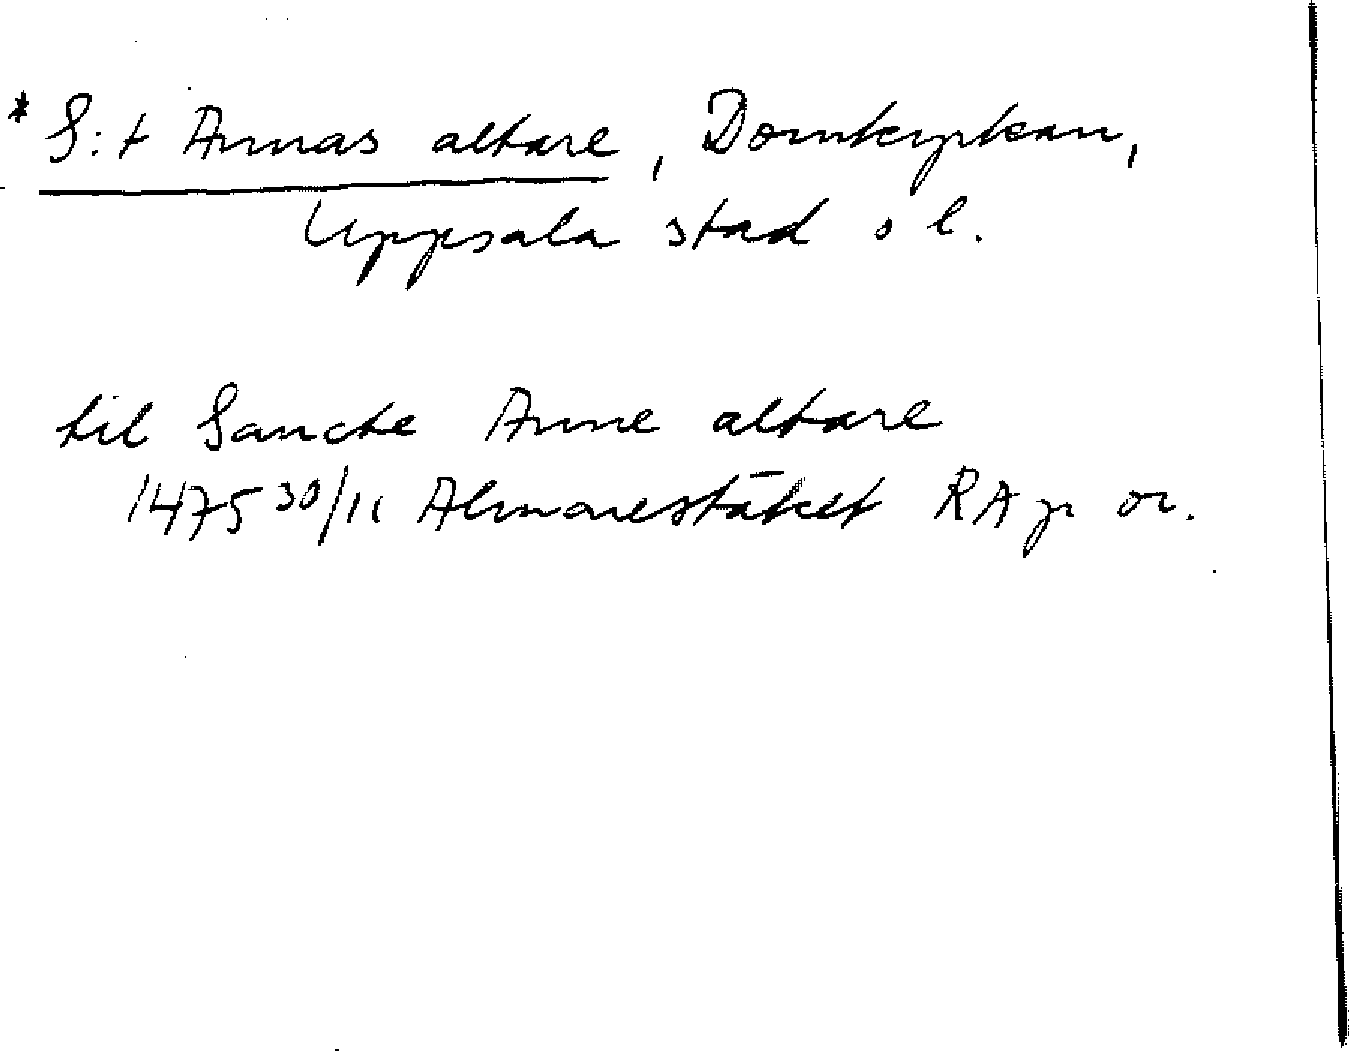 * S:t Annas altare, Domkyrkan,
Uppsala stad o l.
til Sancte Anne altare
1475 30/11 Almarestäket RA p or.